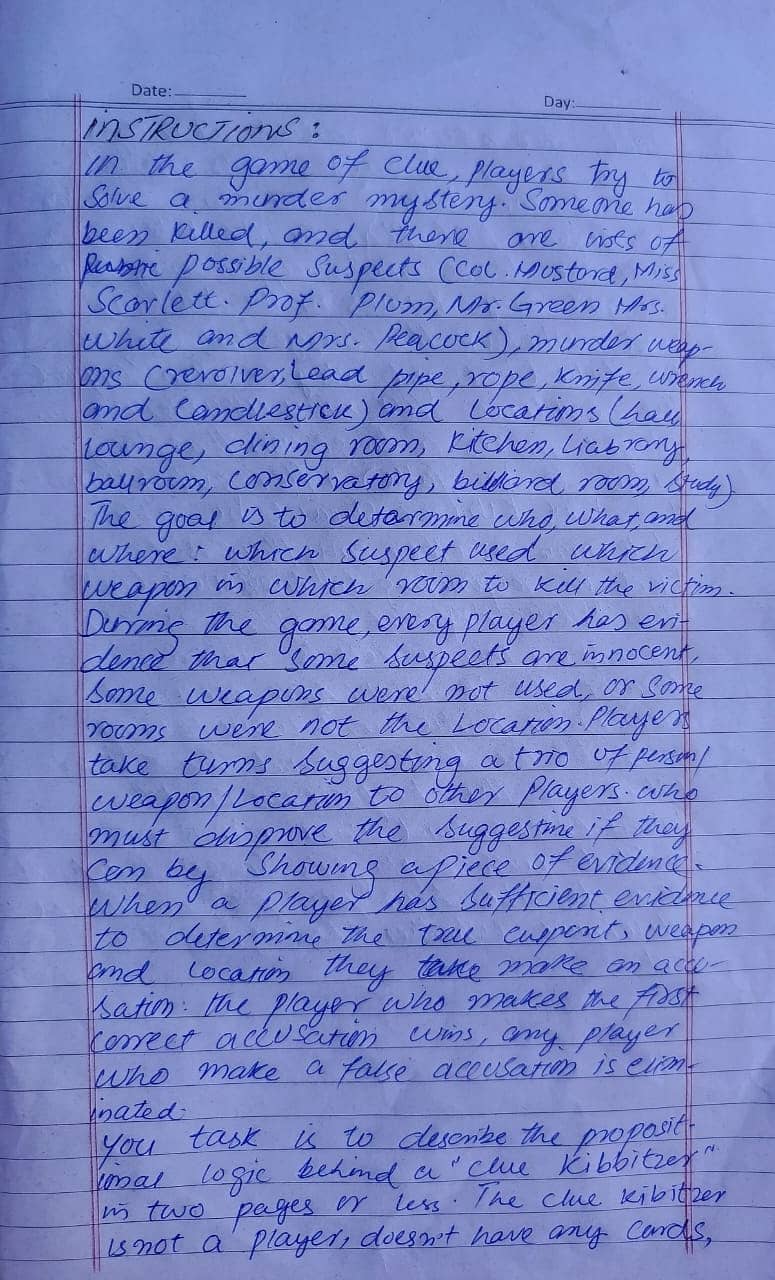 Date:
Day:
INSTRUCTIONS :
in the game of Clue, players try to
Solve a murder mystery. Someone has
been killed, and there are lists of
possible Suspects (Col. Mustard, Miss
Scarlett. Prof. Plum, Mr. Green Mrs.
White and Mrs. Peacock), murder weap-
ons (revolver, Lead pipe, rope, Knife, wrench
and Candlestick) and Locations (hall
lounge, dining room, Kitchen, Liabrary,
ballroom, conservatory, billiard room, study)
The goal is to determine who, what, and
where : which Suspect used which
weapon in which room to kill the victim.
During the game, every player has evi-
dence that some suspects are innocent,
Some weapons were not used, or some
rooms were not the Location. Players
take turns suggesting a trio of person/
weapon/Location to other Players. who
must disprove the suggestine if they
Can by Showing a piece of evidence.
When a player has Sufficient evidence
to determine the true weapon
and Location they take make an accu-
sation. the player who makes the first
correct accusation wins, any player
who make a false accusation is elim-
inated.
You task is to describe the proposit-
ional logic behind a "Clue Kibbitzer"
in two pages or less. The clue kibitzer
is not a player, doesn't have any cards,